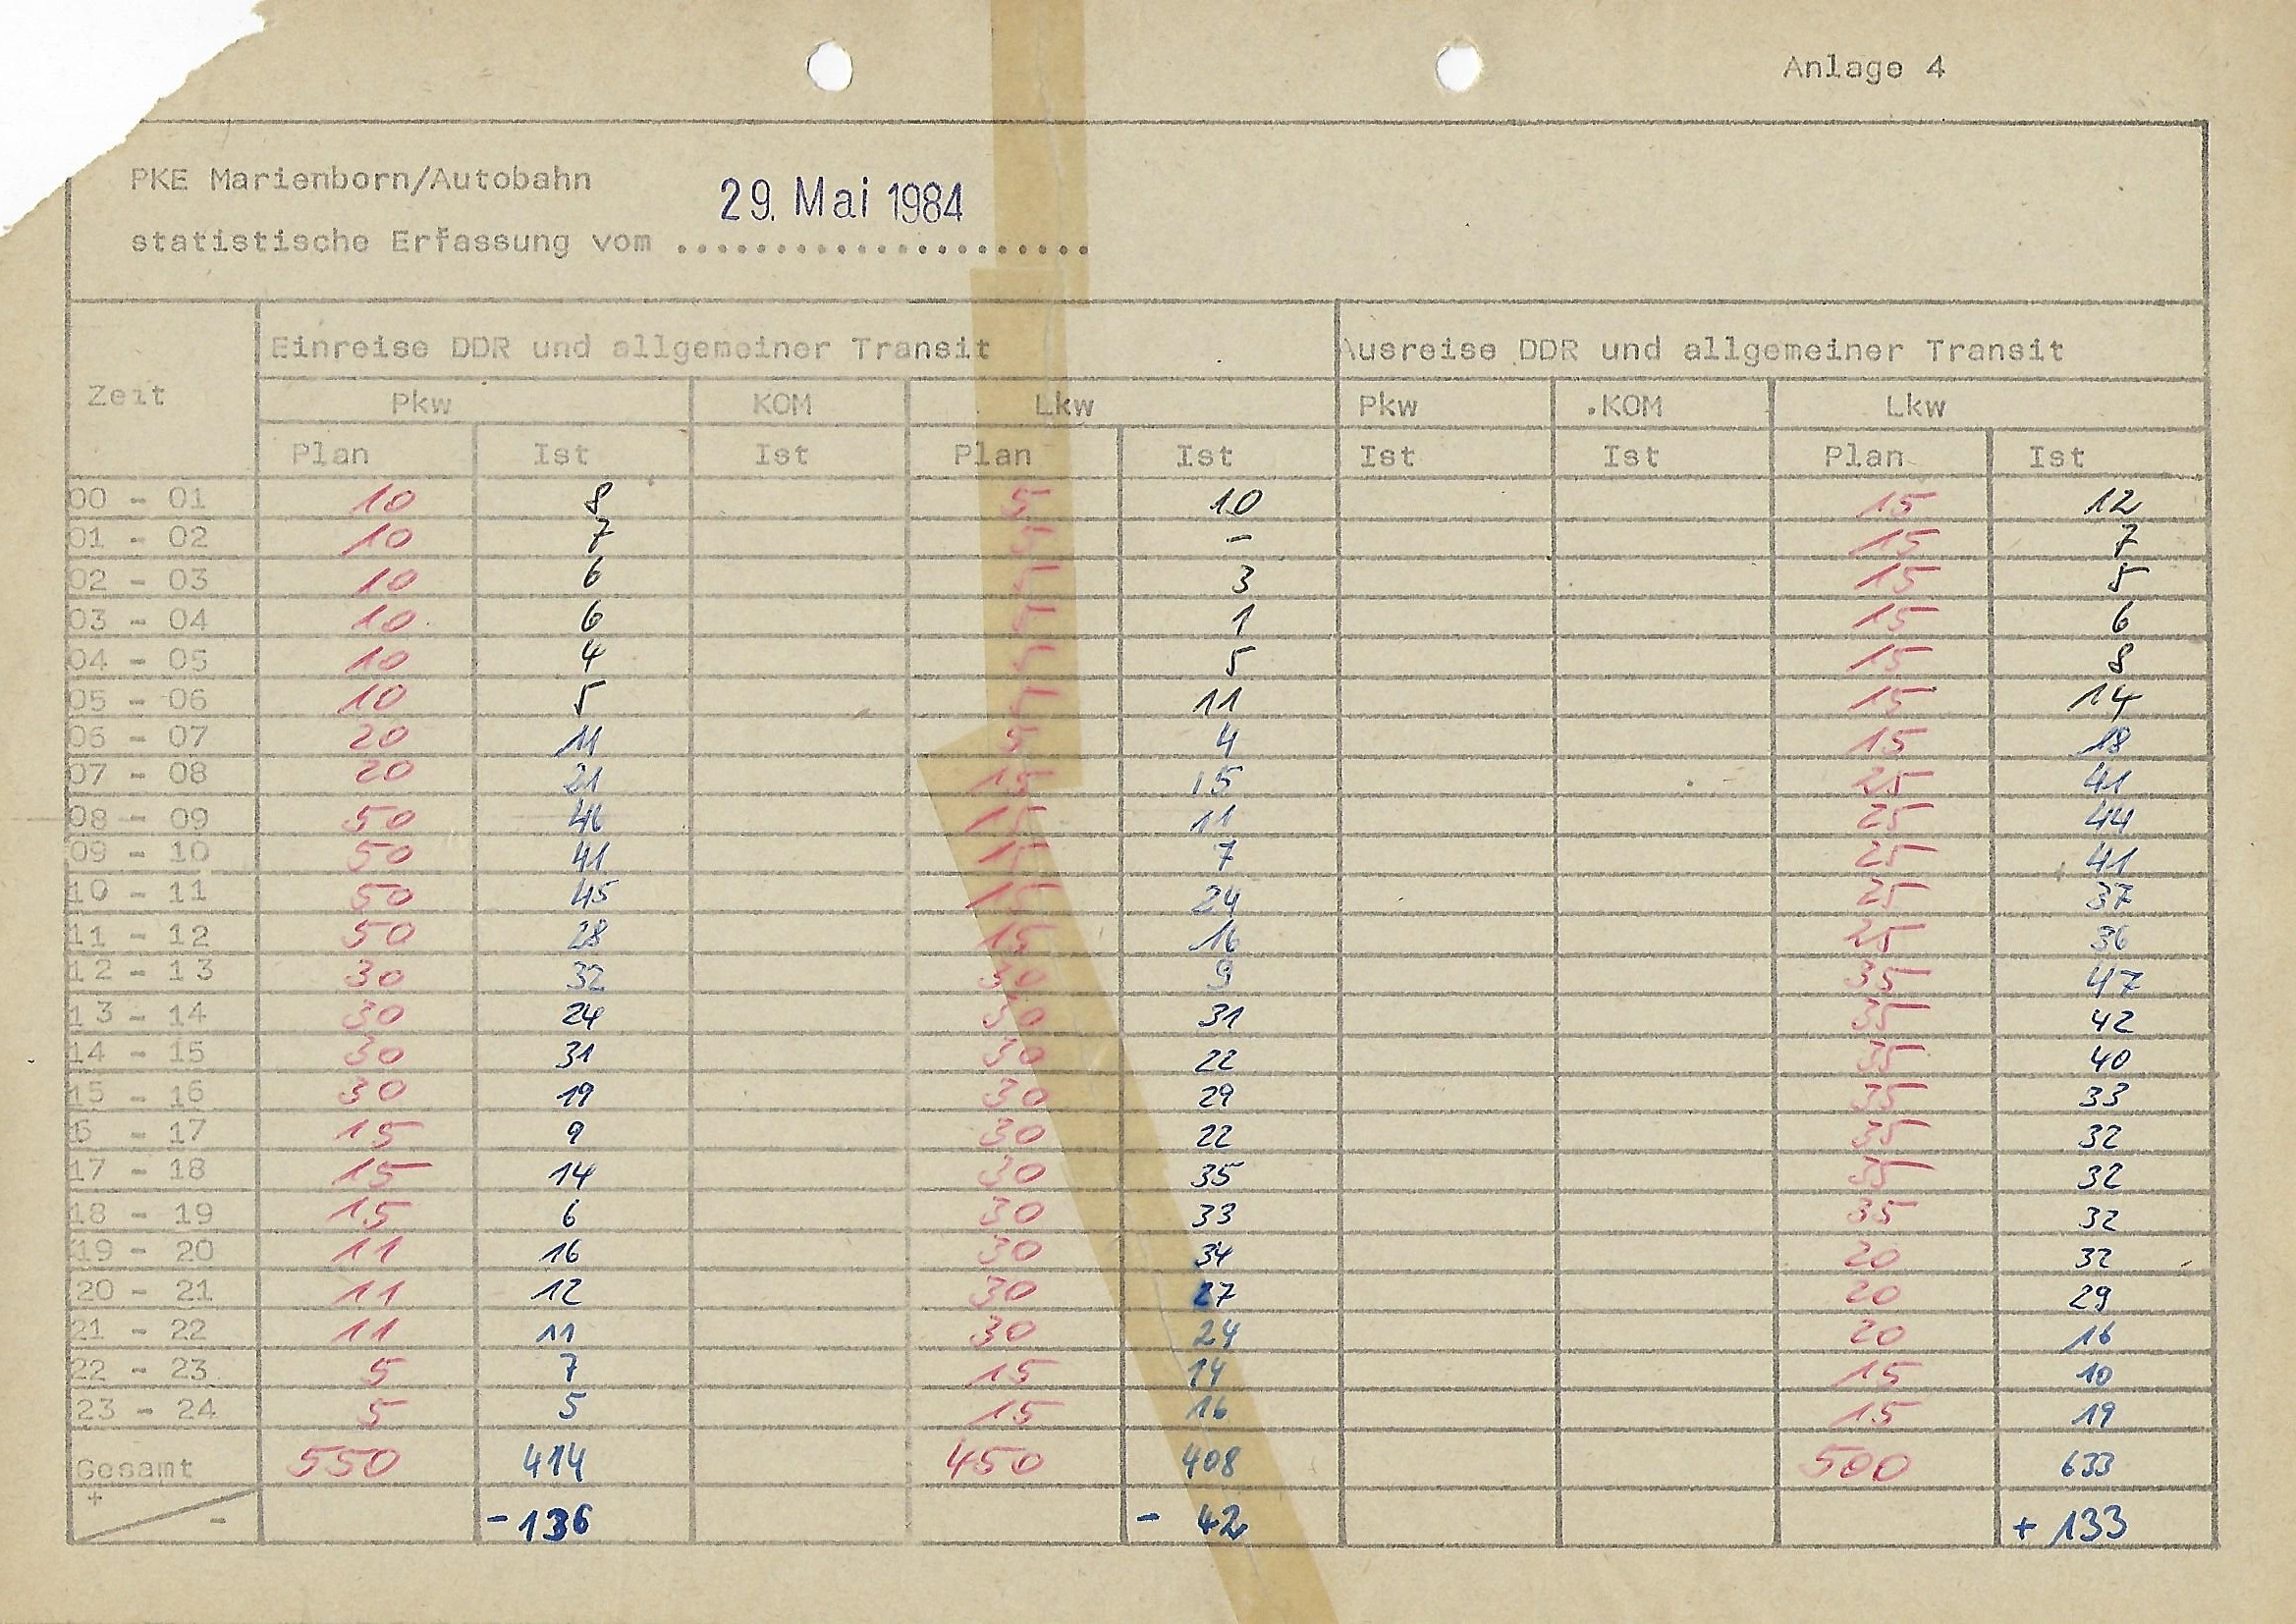 Anlage 4
PKE Marienborn/Autobahn
29. Mai 1984
statistische Erfassung vom .....................
Zeit Einreise DDR und allgemeiner Transit Ausreise DDR und allgemeiner Transit
Pkw KOM Lkw Pkw .KOM Lkw
Plan Ist Ist Plan Ist Ist Ist Plan Ist
00 - 01 10 8 5 10 15 12
01 - 02 10 7 5 - 15 7
02 - 03 10 6 5 3 15 5
03 - 04 10 6 5 1 15 6
04 - 05 10 4 5 5 15 8
05 - 06 10 5 5 11 15 14
06 - 07 20 11 5 4 15 18
07 - 08 20 21 15 15 25 41
08 - 09 50 46 15 11 25 44
09 - 10 50 41 15 7 25 41
10 - 11 50 45 15 24 25 37
11 - 12 50 28 15 16 25 36
12 - 13 30 32 30 9 35 47
13 - 14 30 24 30 31 35 42
14 - 15 30 31 30 22 35 40
15 - 16 30 19 30 29 35 33
6 - 17 15 9 30 22 35 32
17 - 18 15 14 30 35 35 32
18 - 19 15 6 30 33 35 32
19 - 20 11 16 30 34 20 32
20 - 21 11 12 30 27 20 29
21 - 22 11 11 30 24 20 16
22 - 23 5 7 15 14 15 10
23 - 24 5 5 15 16 15 19
Gesamt 550 414 450 408 500 633
+ - -136 - 42 + 133